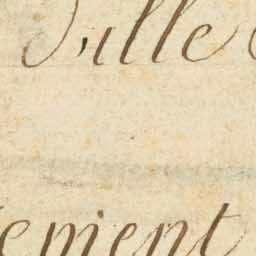 Ville
ement